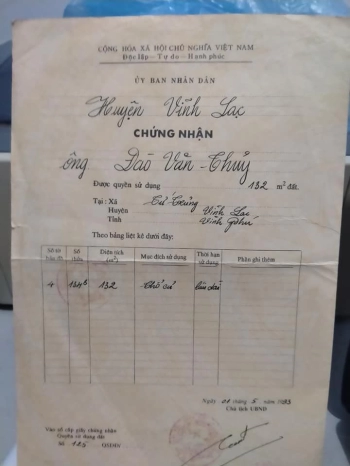 CỘNG HÒA XÃ HỘI CHỦ NGHĨA VIỆT NAM
Độc lập - Tự do - Hạnh phúc
ỦY BAN NHÂN DÂN
Huyện Vĩnh Lạc
CHỨNG NHẬN
ông Đào Văn Thủy
Được quyền sử dụng 132 m² đất.
Tại: Xã Tứ Trưng
Huyện Vĩnh Lạc
Tỉnh Vĩnh Phú
Theo bảng liệt kê dưới đây:
Số tờ bản đồ Số thửa Diện tích (m²) Mục đích sử dụng Thời hạn sử dụng Phần ghi thêm
4 132 Thổ cư lâu dài
Ngày 01 tháng 5 năm
Chủ tịch UBND
Vào sổ cấp giấy chứng nhận
Quyền sử dụng đất
Số 125 QSDĐ/